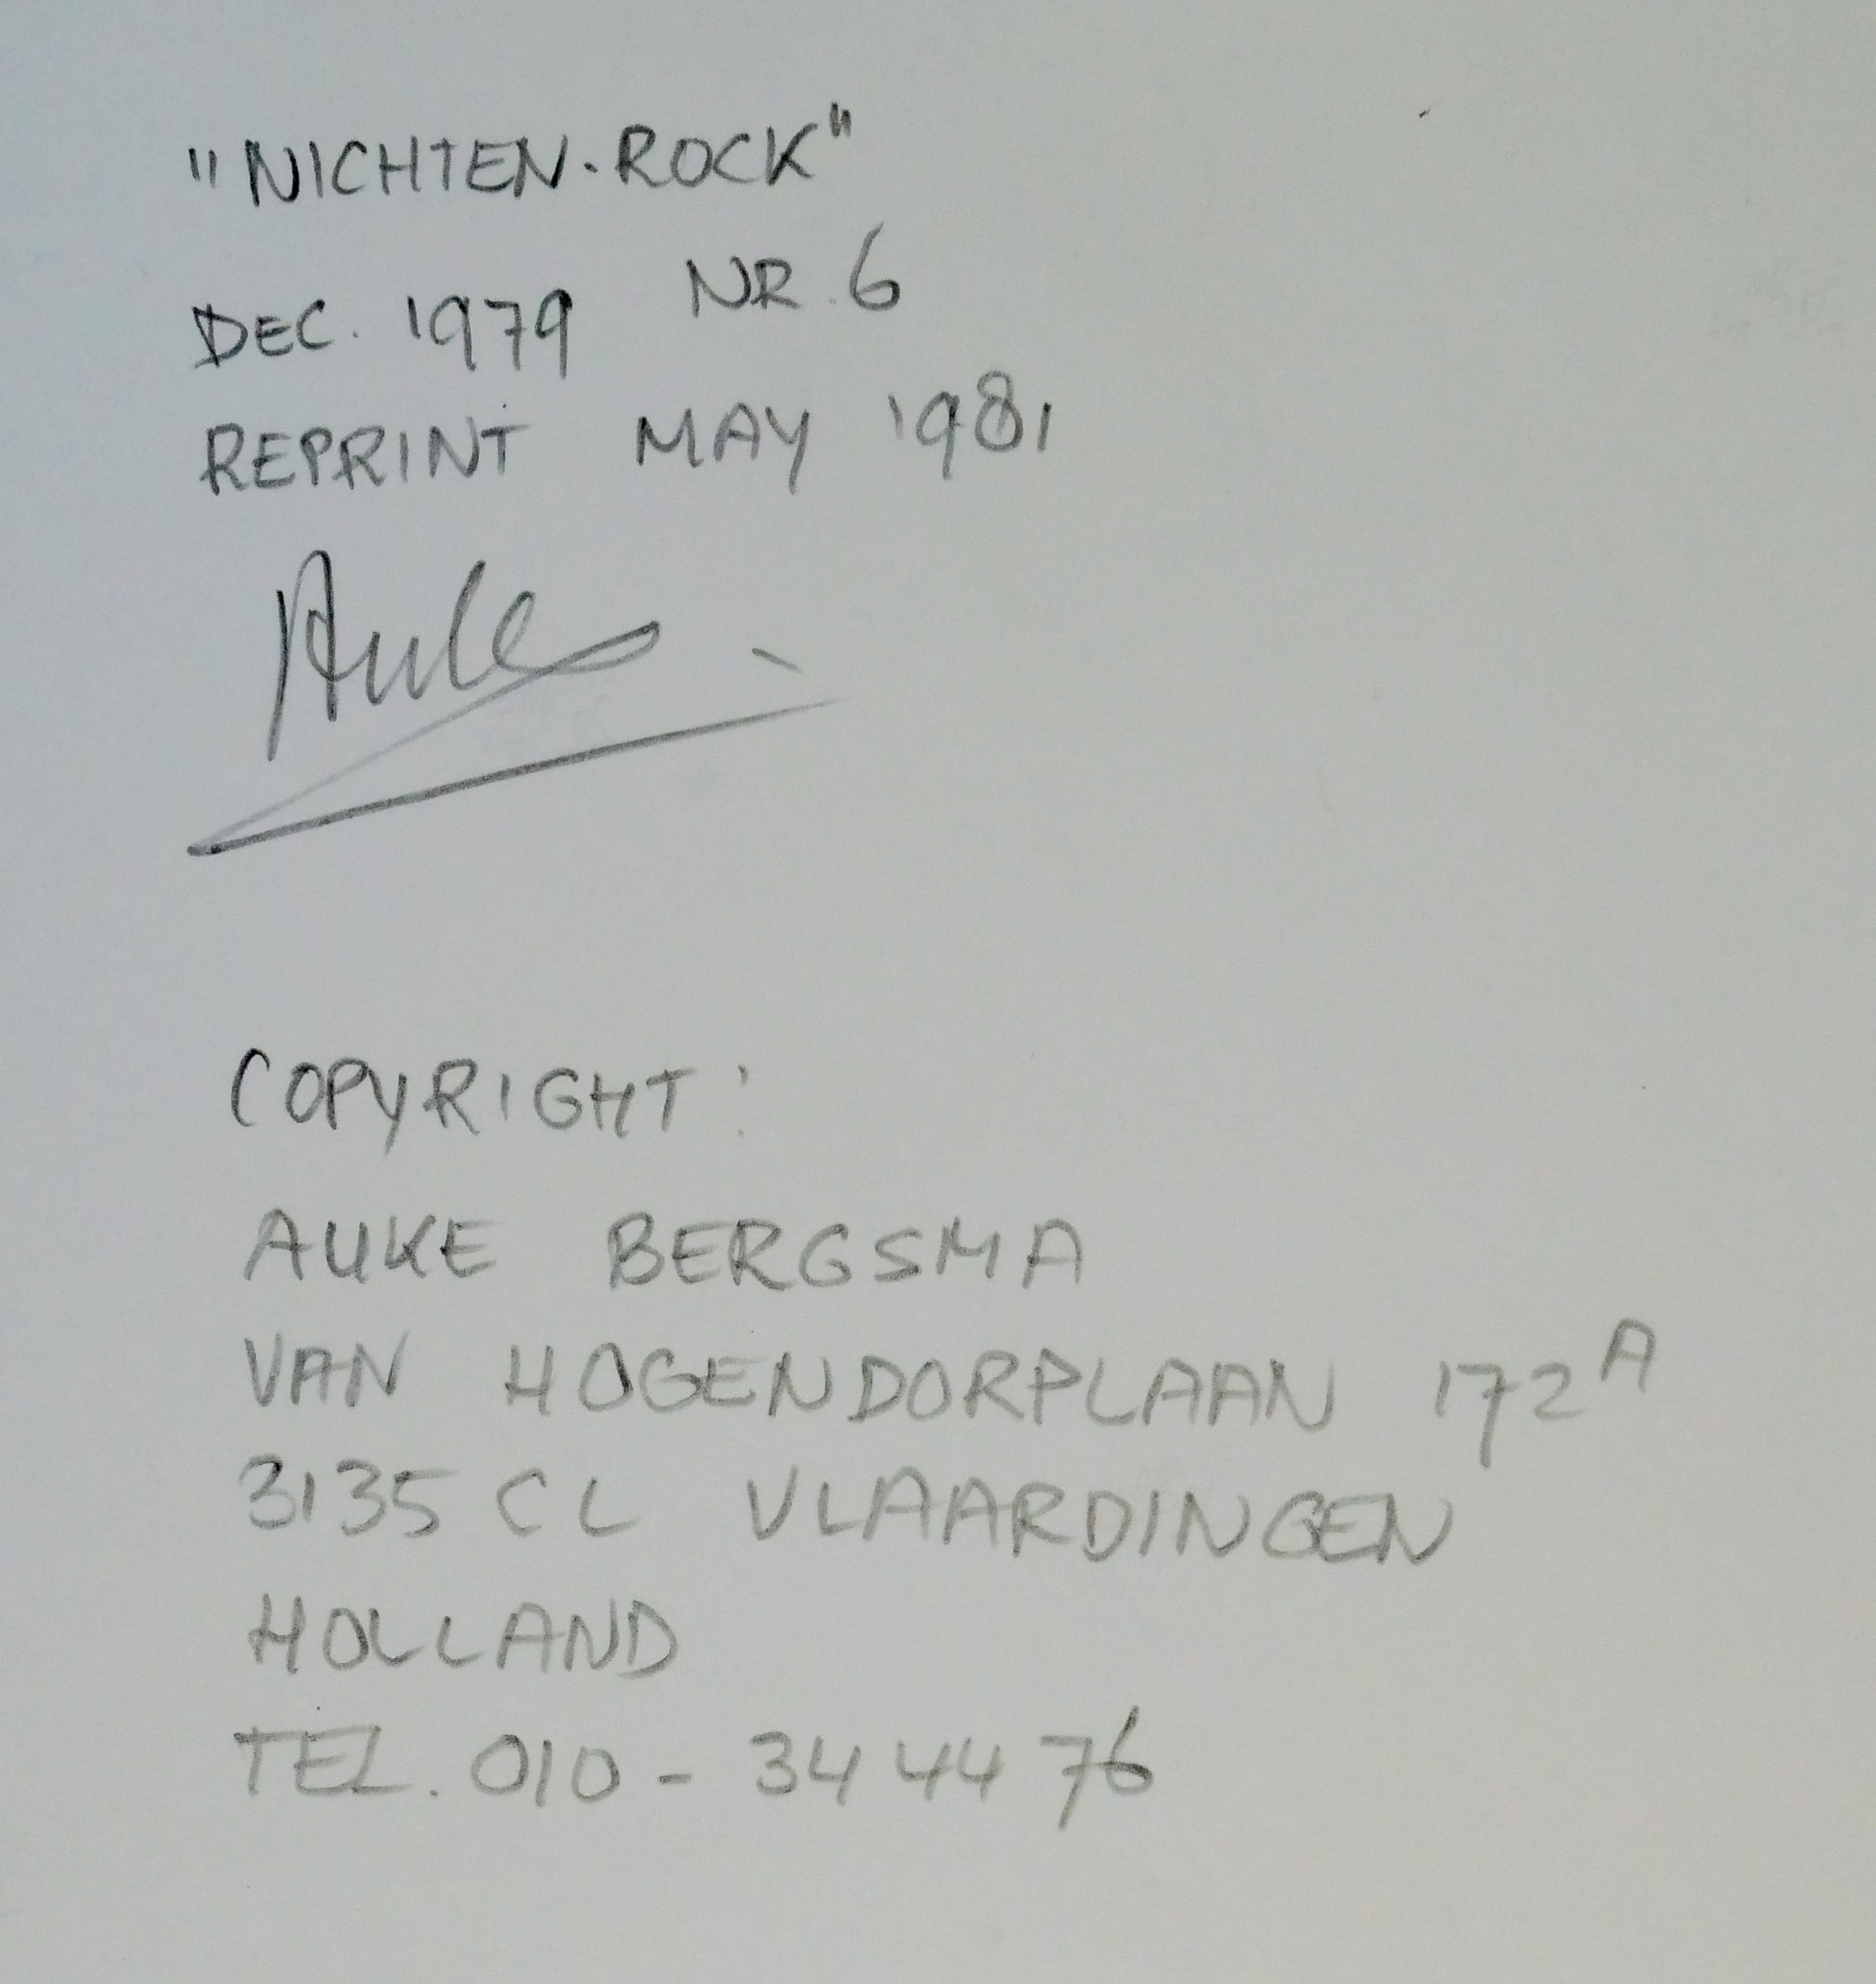 "NICHTEN-ROCK"
DEC. 1979 NR. 6
REPRINT MAY 1981
Auke
COPYRIGHT:
AUKE BERGSMA
VAN HOGENDORPLAAN 172A
3135 CL VLAARDINGEN
HOLLAND
TEL. 010 - 34 44 76